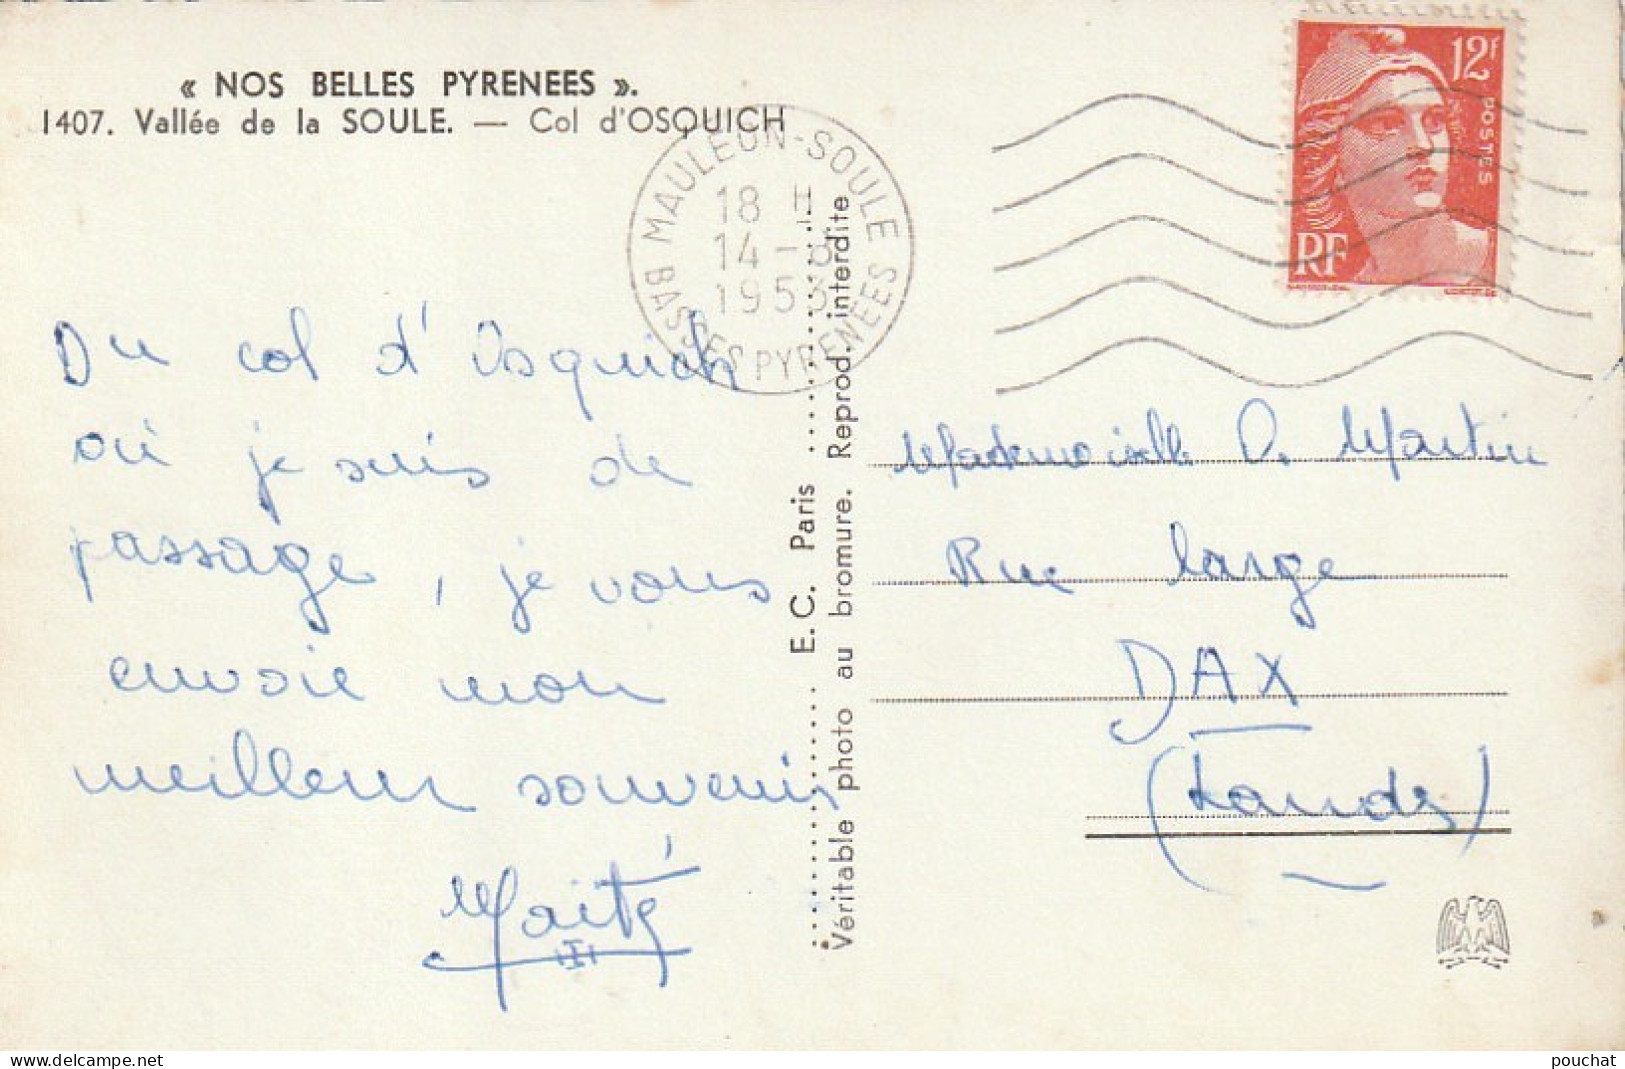 « NOS BELLES PYRENEES ».
1407. Vallée de la SOULE. — Col d'OSQUICH
MAULEON-SOULE
18 H
14-8
1953
BASSES PYRENEES
12F
POSTES
RF
Du col d'Osquich
où je suis de
passage, je vous
envoie mon
meilleur souvenir
Maïté
E. C. Paris
Véritable photo au bromure. Reprod. interdite
Mademoiselle O. Martin
Rue large
DAX
(Landes)
www.delcampe.net
pouchat